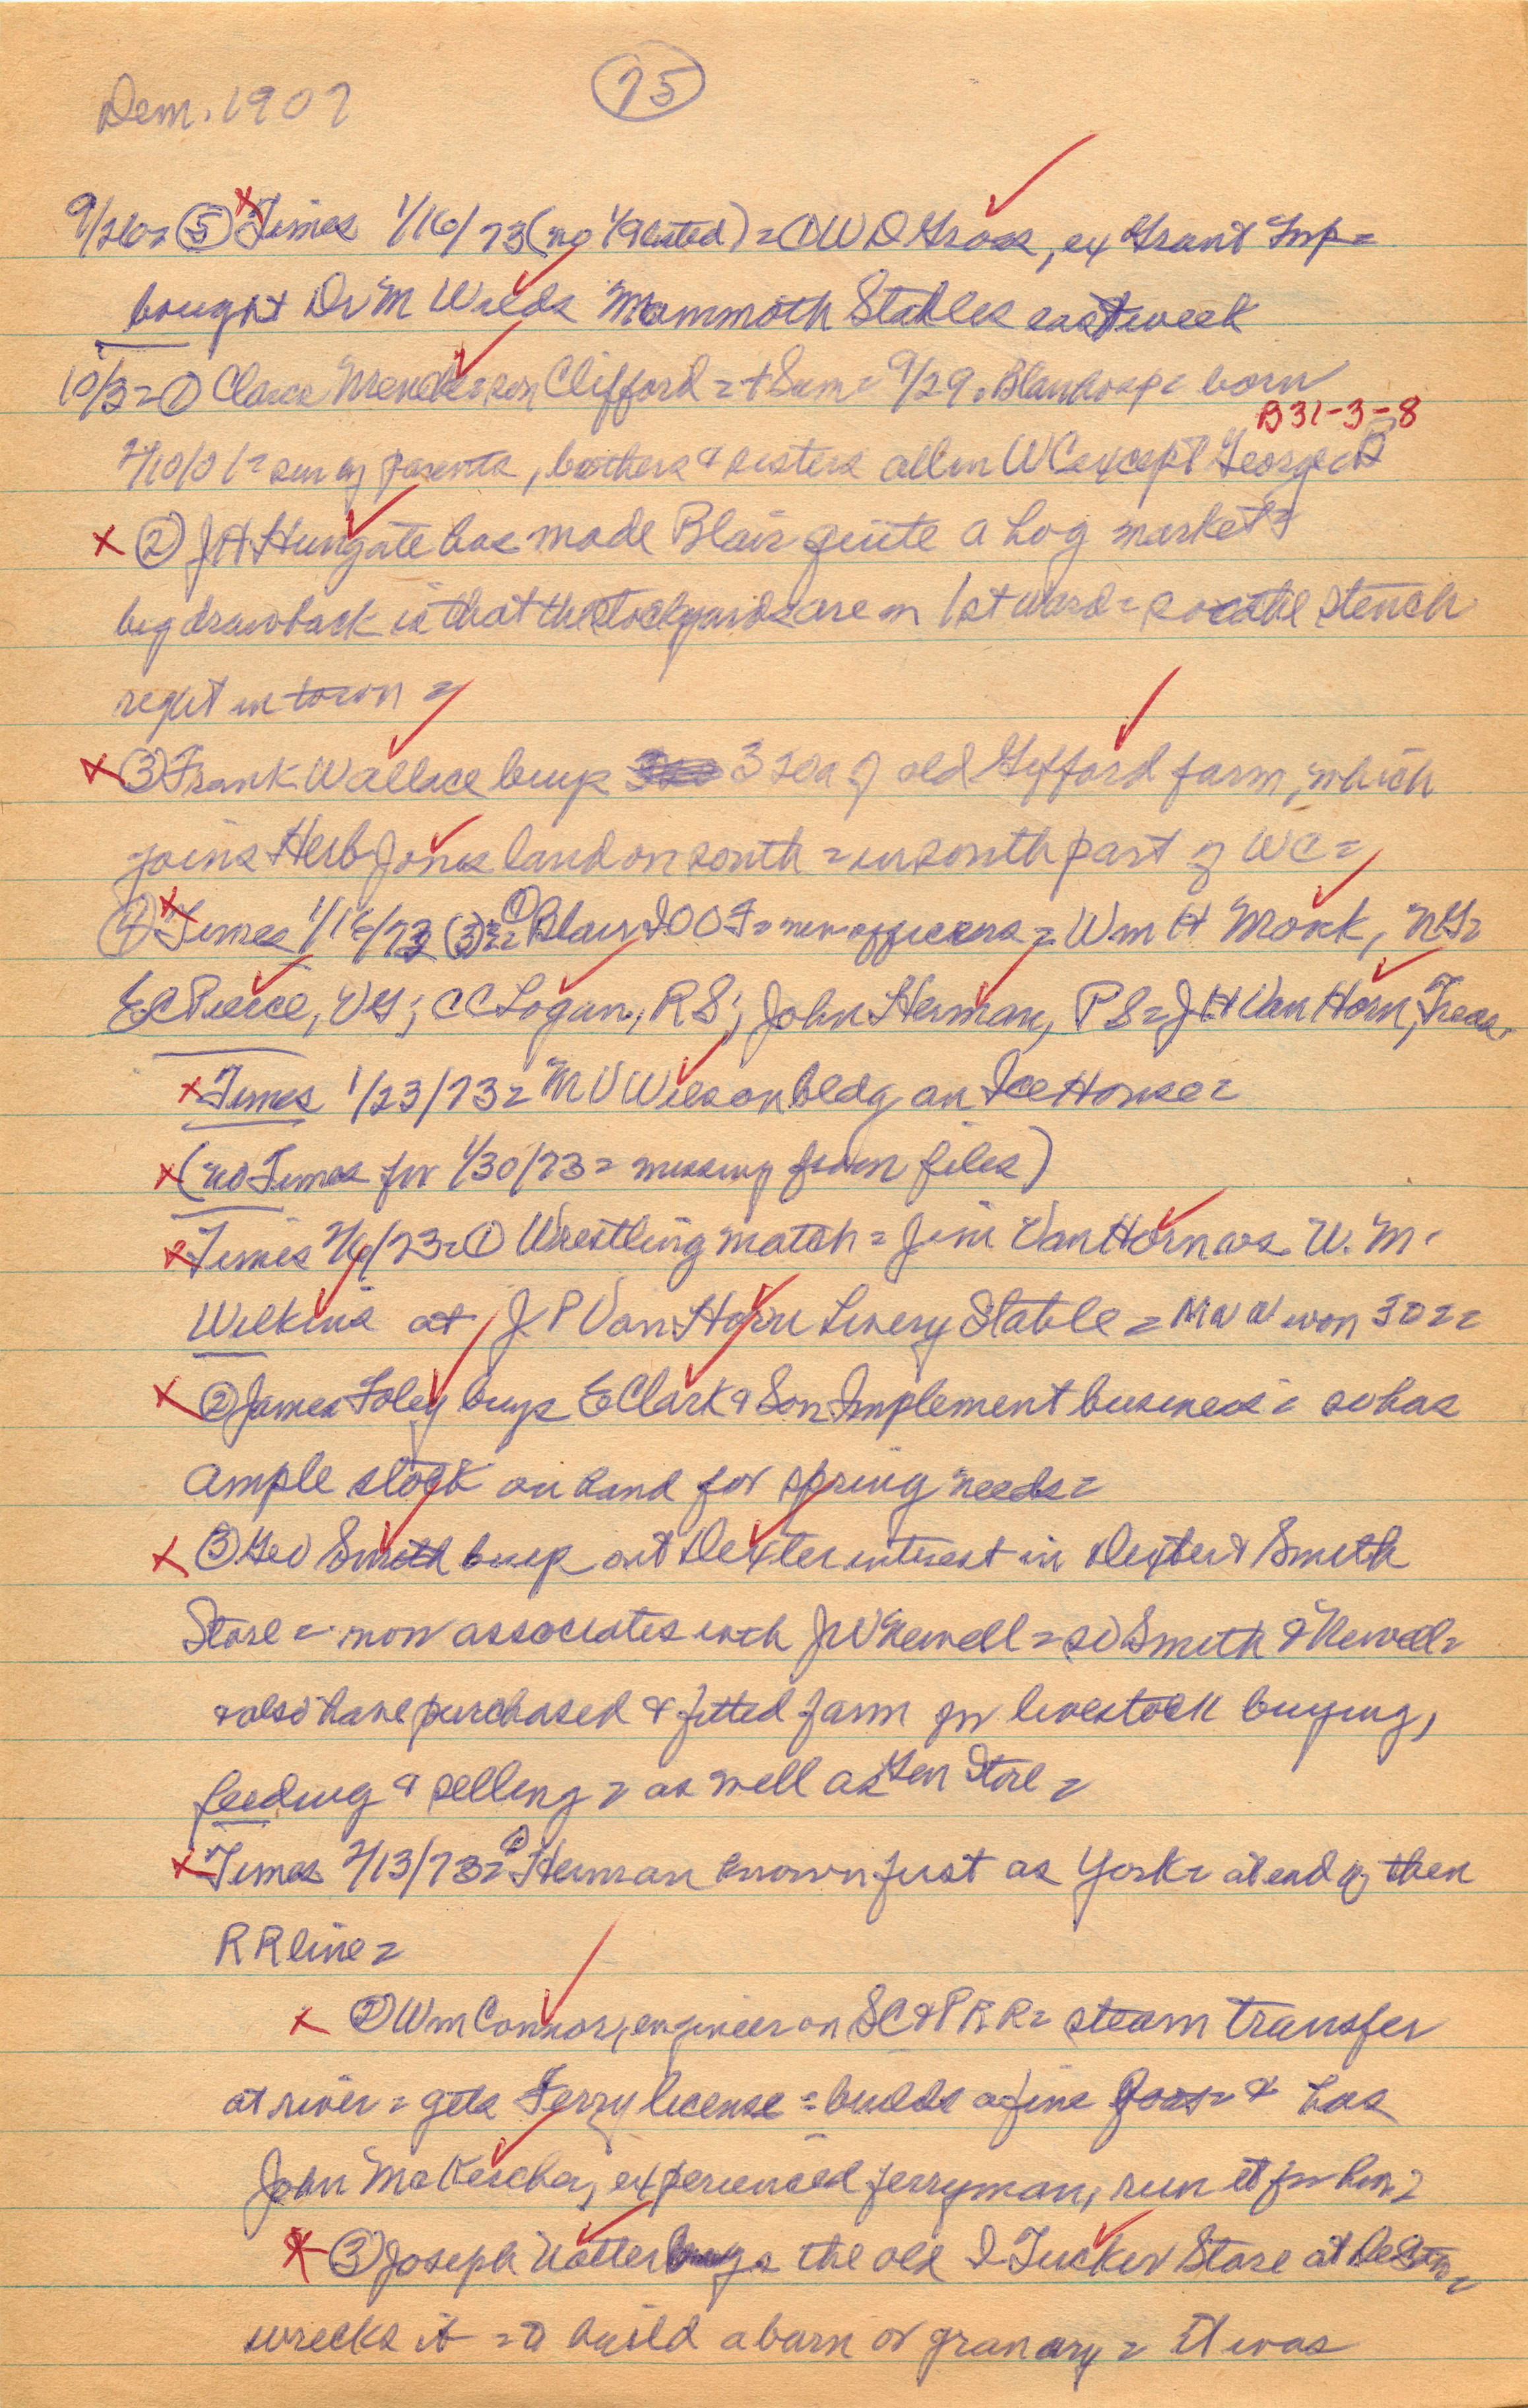 Dem. 1907
75
9/26= ⑤ Times 1/16/73 (no 1/9 listed) = ① W D Gross, ex Grant Twp=
bought Dr M Wilds Mammoth Stables last week
10/3= ① Clark son Clifford = + Sum= 9/29 = Blair hosp= born
B31-3-8
2/10/01= sur by parents, brothers & sisters all in WC except George D
② J A Hungate has made Blair quite a hog market=
big drawback is that the stockyards are in 1st ward = so stench
right in town =
③ Frank Wallace buys 320a of old Gifford farm, which
joins Herb Jones land on south = in south part of WC=
④ Times 1/16/73 (3)= ① Blair IOOF= new officers= Wm H Monk, NG=
E C Pierce, VG; C C Logan, RS; John Herman, PS= J H Van Horn, Treas.
Times 1/23/73= M V Wilson bldg an Ice House=
(no Times for 1/30/73= missing from files)
Times 2/6/73= ① Wrestling match= Jim Van Horn vs W. M.
Wilkins at J P Van Horn Livery Stable = won 3 02=
② James Foley buys E Clark & Son Implement business= so has
ample stock on hand for spring needs=
③ Geo Smith buys out Dexter interest in Dexter & Smith
Store = now associates with J W Newell = so Smith & Newell=
& also have purchased & fitted farm for livestock buying,
feeding & selling = as well as Gen Store =
Times 2/13/73= ① Herman known first as York= at end of then
RR line=
② Wm Connor, engineer on SC&P RR= steam transfer
at river = gets Ferry license = builds a fine & has
John experienced ferryman, run it for him=
③ Joseph buys the old I Tucker Store at DeSoto=
wrecks it = to build a barn or granary = It was